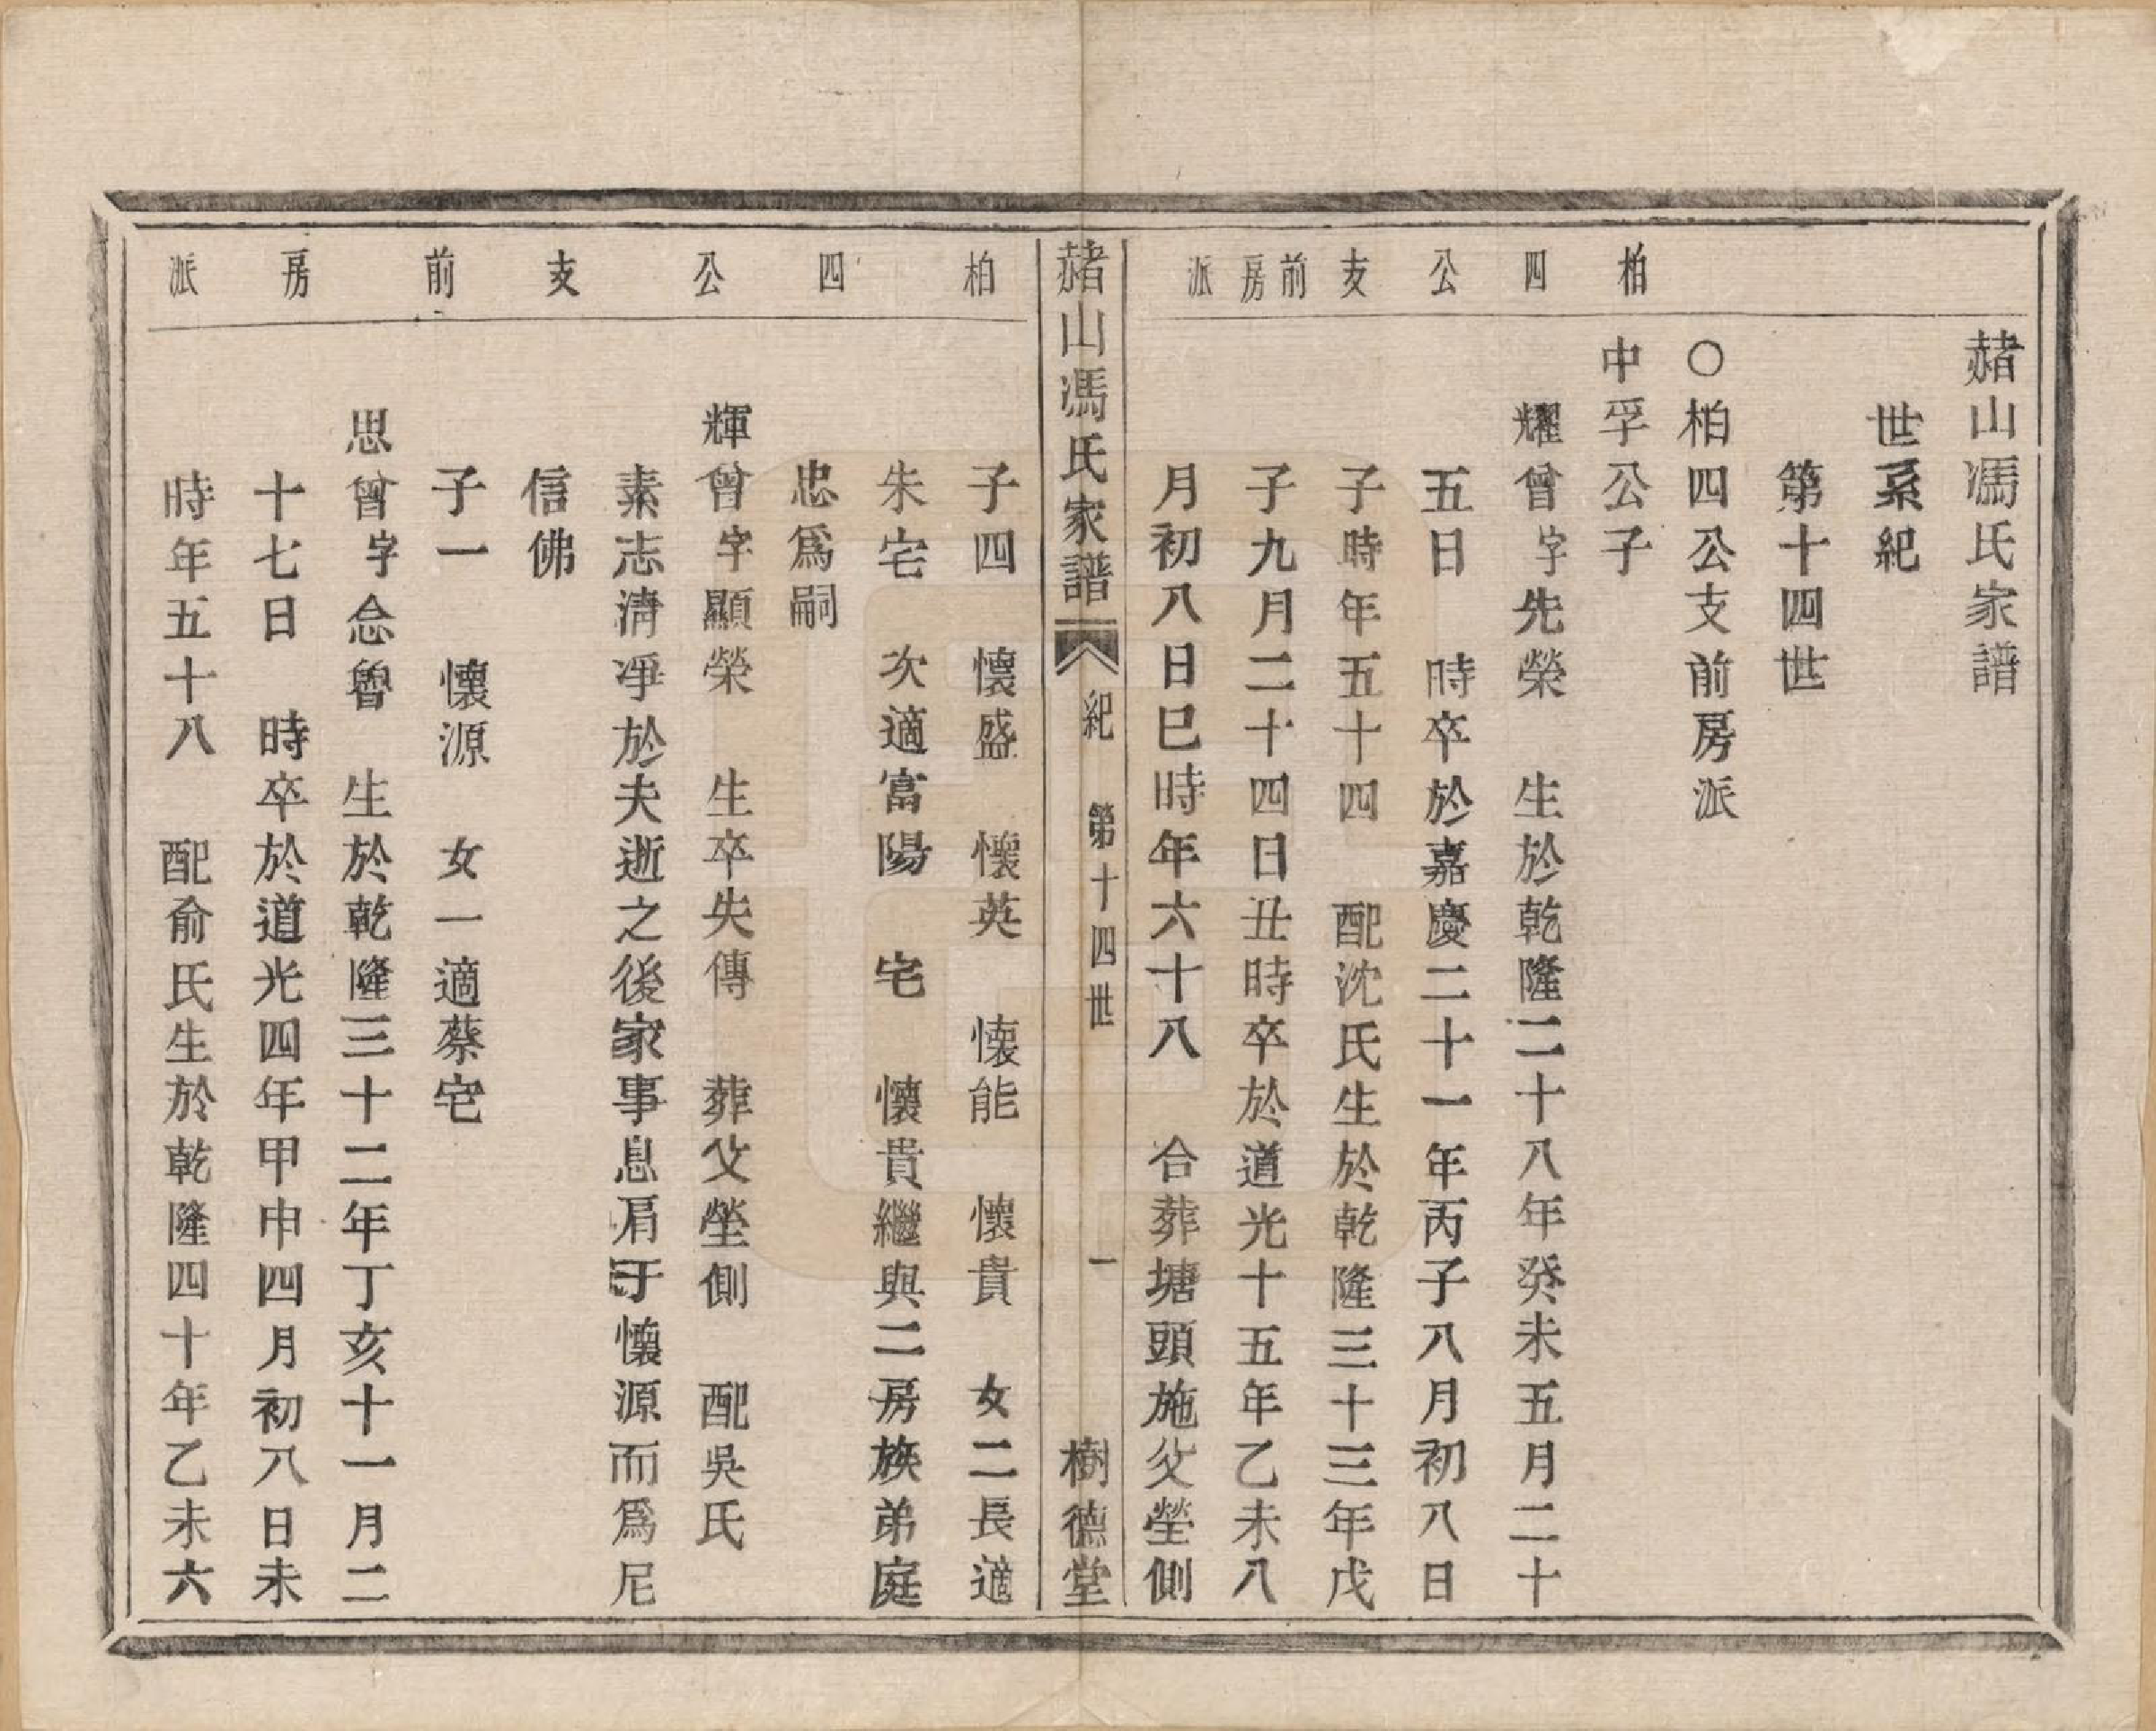 柏四公支前房派
赭山馮氏家譜
世系紀
第十四世
〇柏四公支前房派
中孚公子
耀曾字先榮　生於乾隆二十八年癸未五月二十
五日　時卒於嘉慶二十一年丙子八月初八日
子時年五十四　配沈氏生於乾隆三十三年戊
子九月二十四日丑時卒於道光十五年乙未八
月初八日巳時年六十八　合葬塘頭施父塋側
赭山馮氏家譜　紀　第十四世　一　樹德堂
柏四公支前房派
子四　懷盛　懷英　懷能　懷貴　女二長適
朱宅　次適富陽　宅　懷貴繼與二房族弟庭
忠爲嗣
輝曾字顯榮　生卒失傳　葬父塋側　配吳氏
素志清凈於夫逝之後家事息肩于懷源而爲尼
信佛
子一　懷源　女一適蔡宅
思曾字念魯　生於乾隆三十二年丁亥十一月二
十七日　時卒於道光四年甲申四月初八日未
時年五十八　配俞氏生於乾隆四十年乙未六